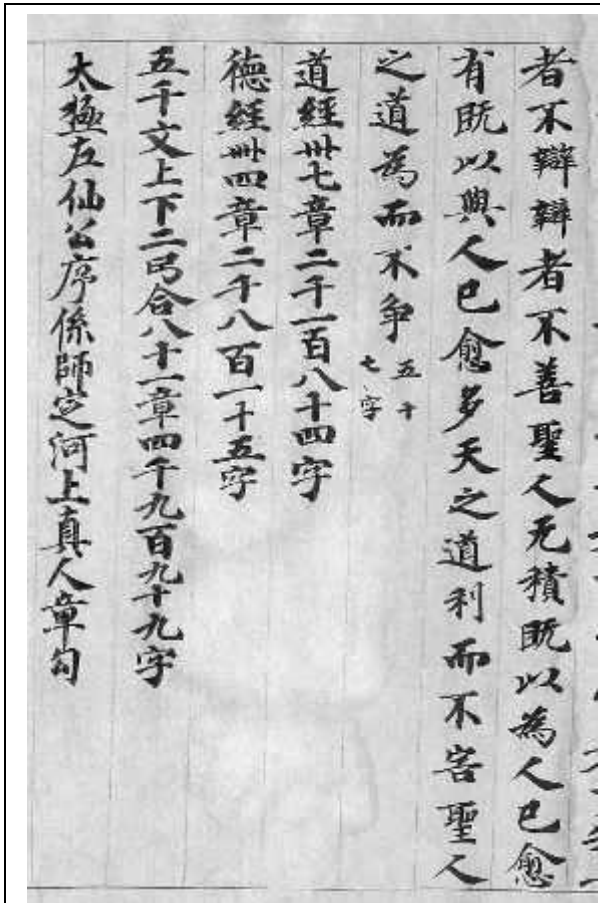 者不辯辯者不善聖人无積既以為人已愈
有既以與人已愈多天之道利而不害聖人
之道為而不争五十七字
道經卅七章二千一百八十四字
德經卌四章二千八百一十五字
五千文上下二弓合八十一章四千九百九十九字
太極左仙公序係師定河上真人章句